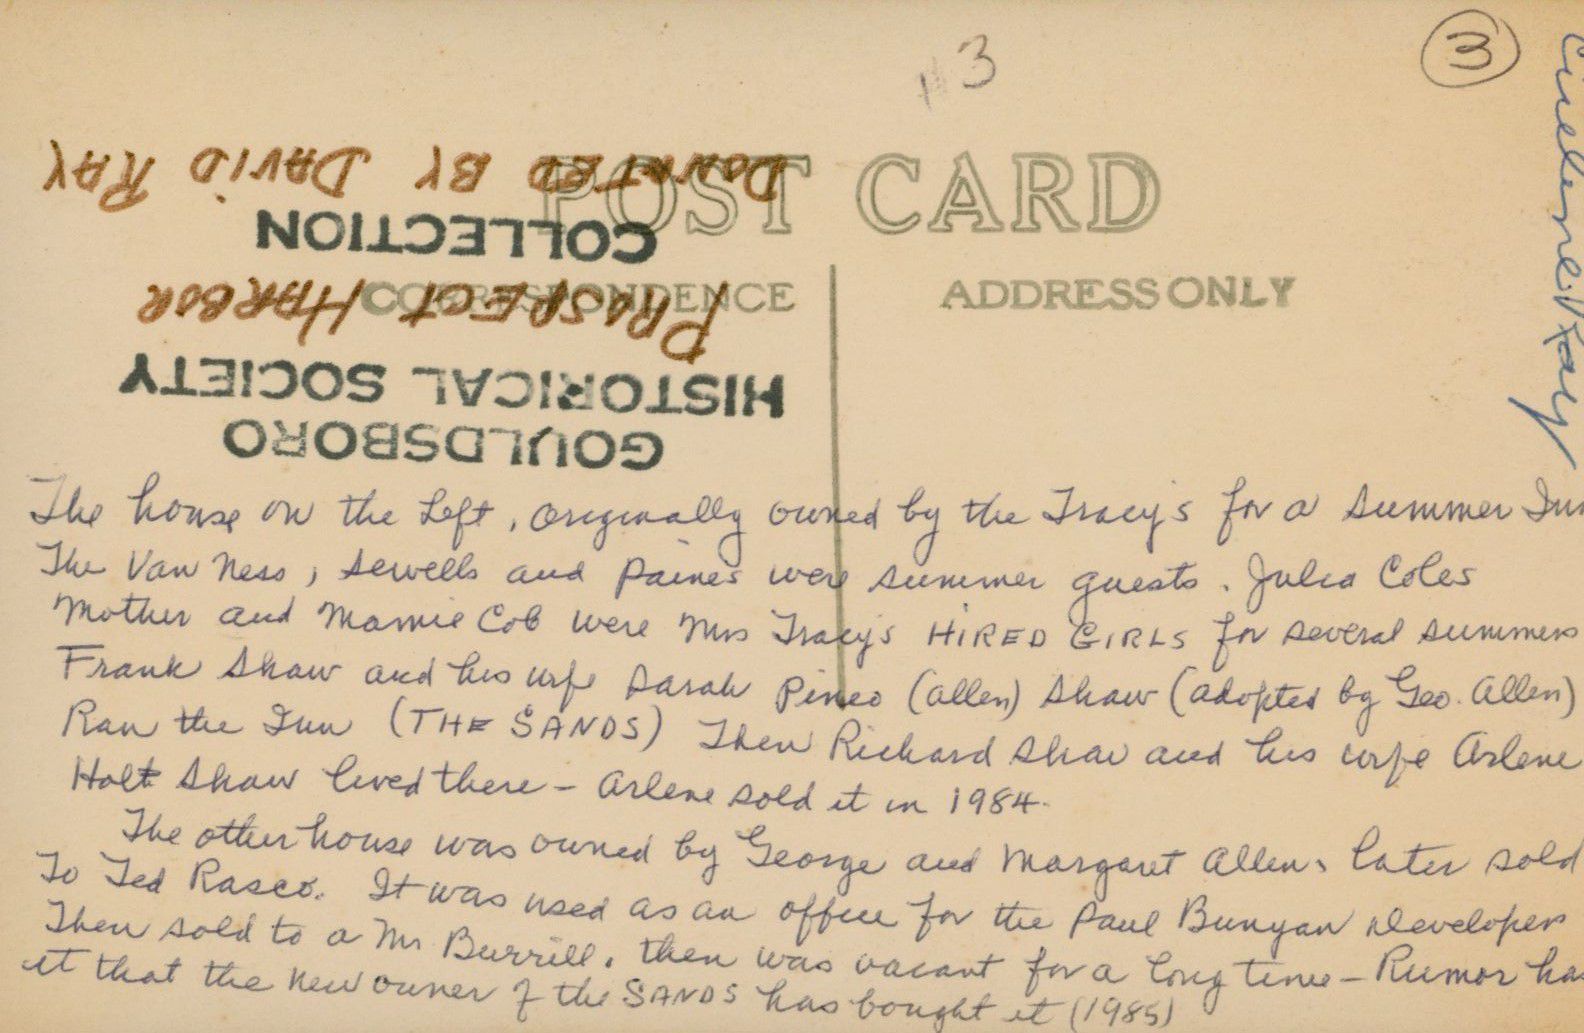 #3
3
POST CARD
CORRESPONDENCE
ADDRESS ONLY
GOULDSBORO
HISTORICAL SOCIETY
PROSPECT HARBOR
COLLECTION
DONATED BY DAVID RAY
Ray
The house on the Left, originally owned by the Tracy's for a summer Inn
The Van Ness, Sewells and Paines were summer guests. Julia Coles
Mother and Mamie Cob were Mrs Tracy's HIRED GIRLS for several summers
Frank Shaw and his wife Sarah Pineo (Allen) Shaw (adopted by Geo. Allen)
Ran the Inn (THE SANDS) Then Richard Shaw and his wife Arlene
Holt Shaw lived there - Arlene sold it in 1984.
The other house was owned by George and Margaret Allen, later sold
To Ted Rasco. It was used as an office for the Paul Bunyan Developers
Then sold to a Mr Burrill, then was vacant for a long time - Rumor has
it that the new owner of the SANDS has bought it (1985)